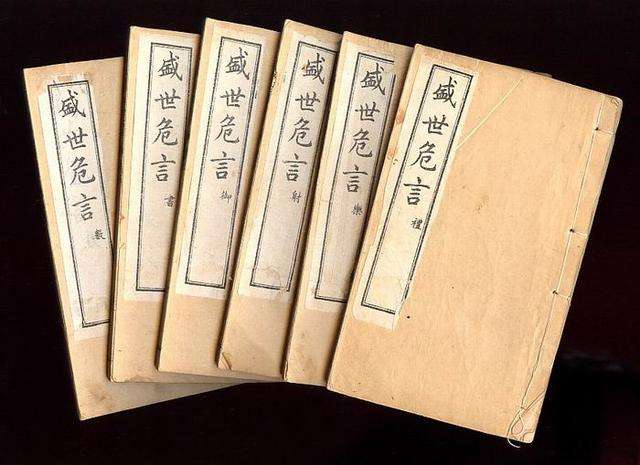 盛世危言 禮
盛世危言 樂
盛世危言 射
盛世危言 御
盛世危言 書
盛世危言 數